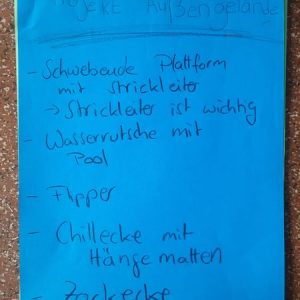 Projekt Außengelände
- Schwebende Plattform
mit strickleiter
→ Strickleiter ist wichtig
- Wasserrutsche mit
Pool
- Flipper
- Chillecke mit
Hängematten
- Zockecke